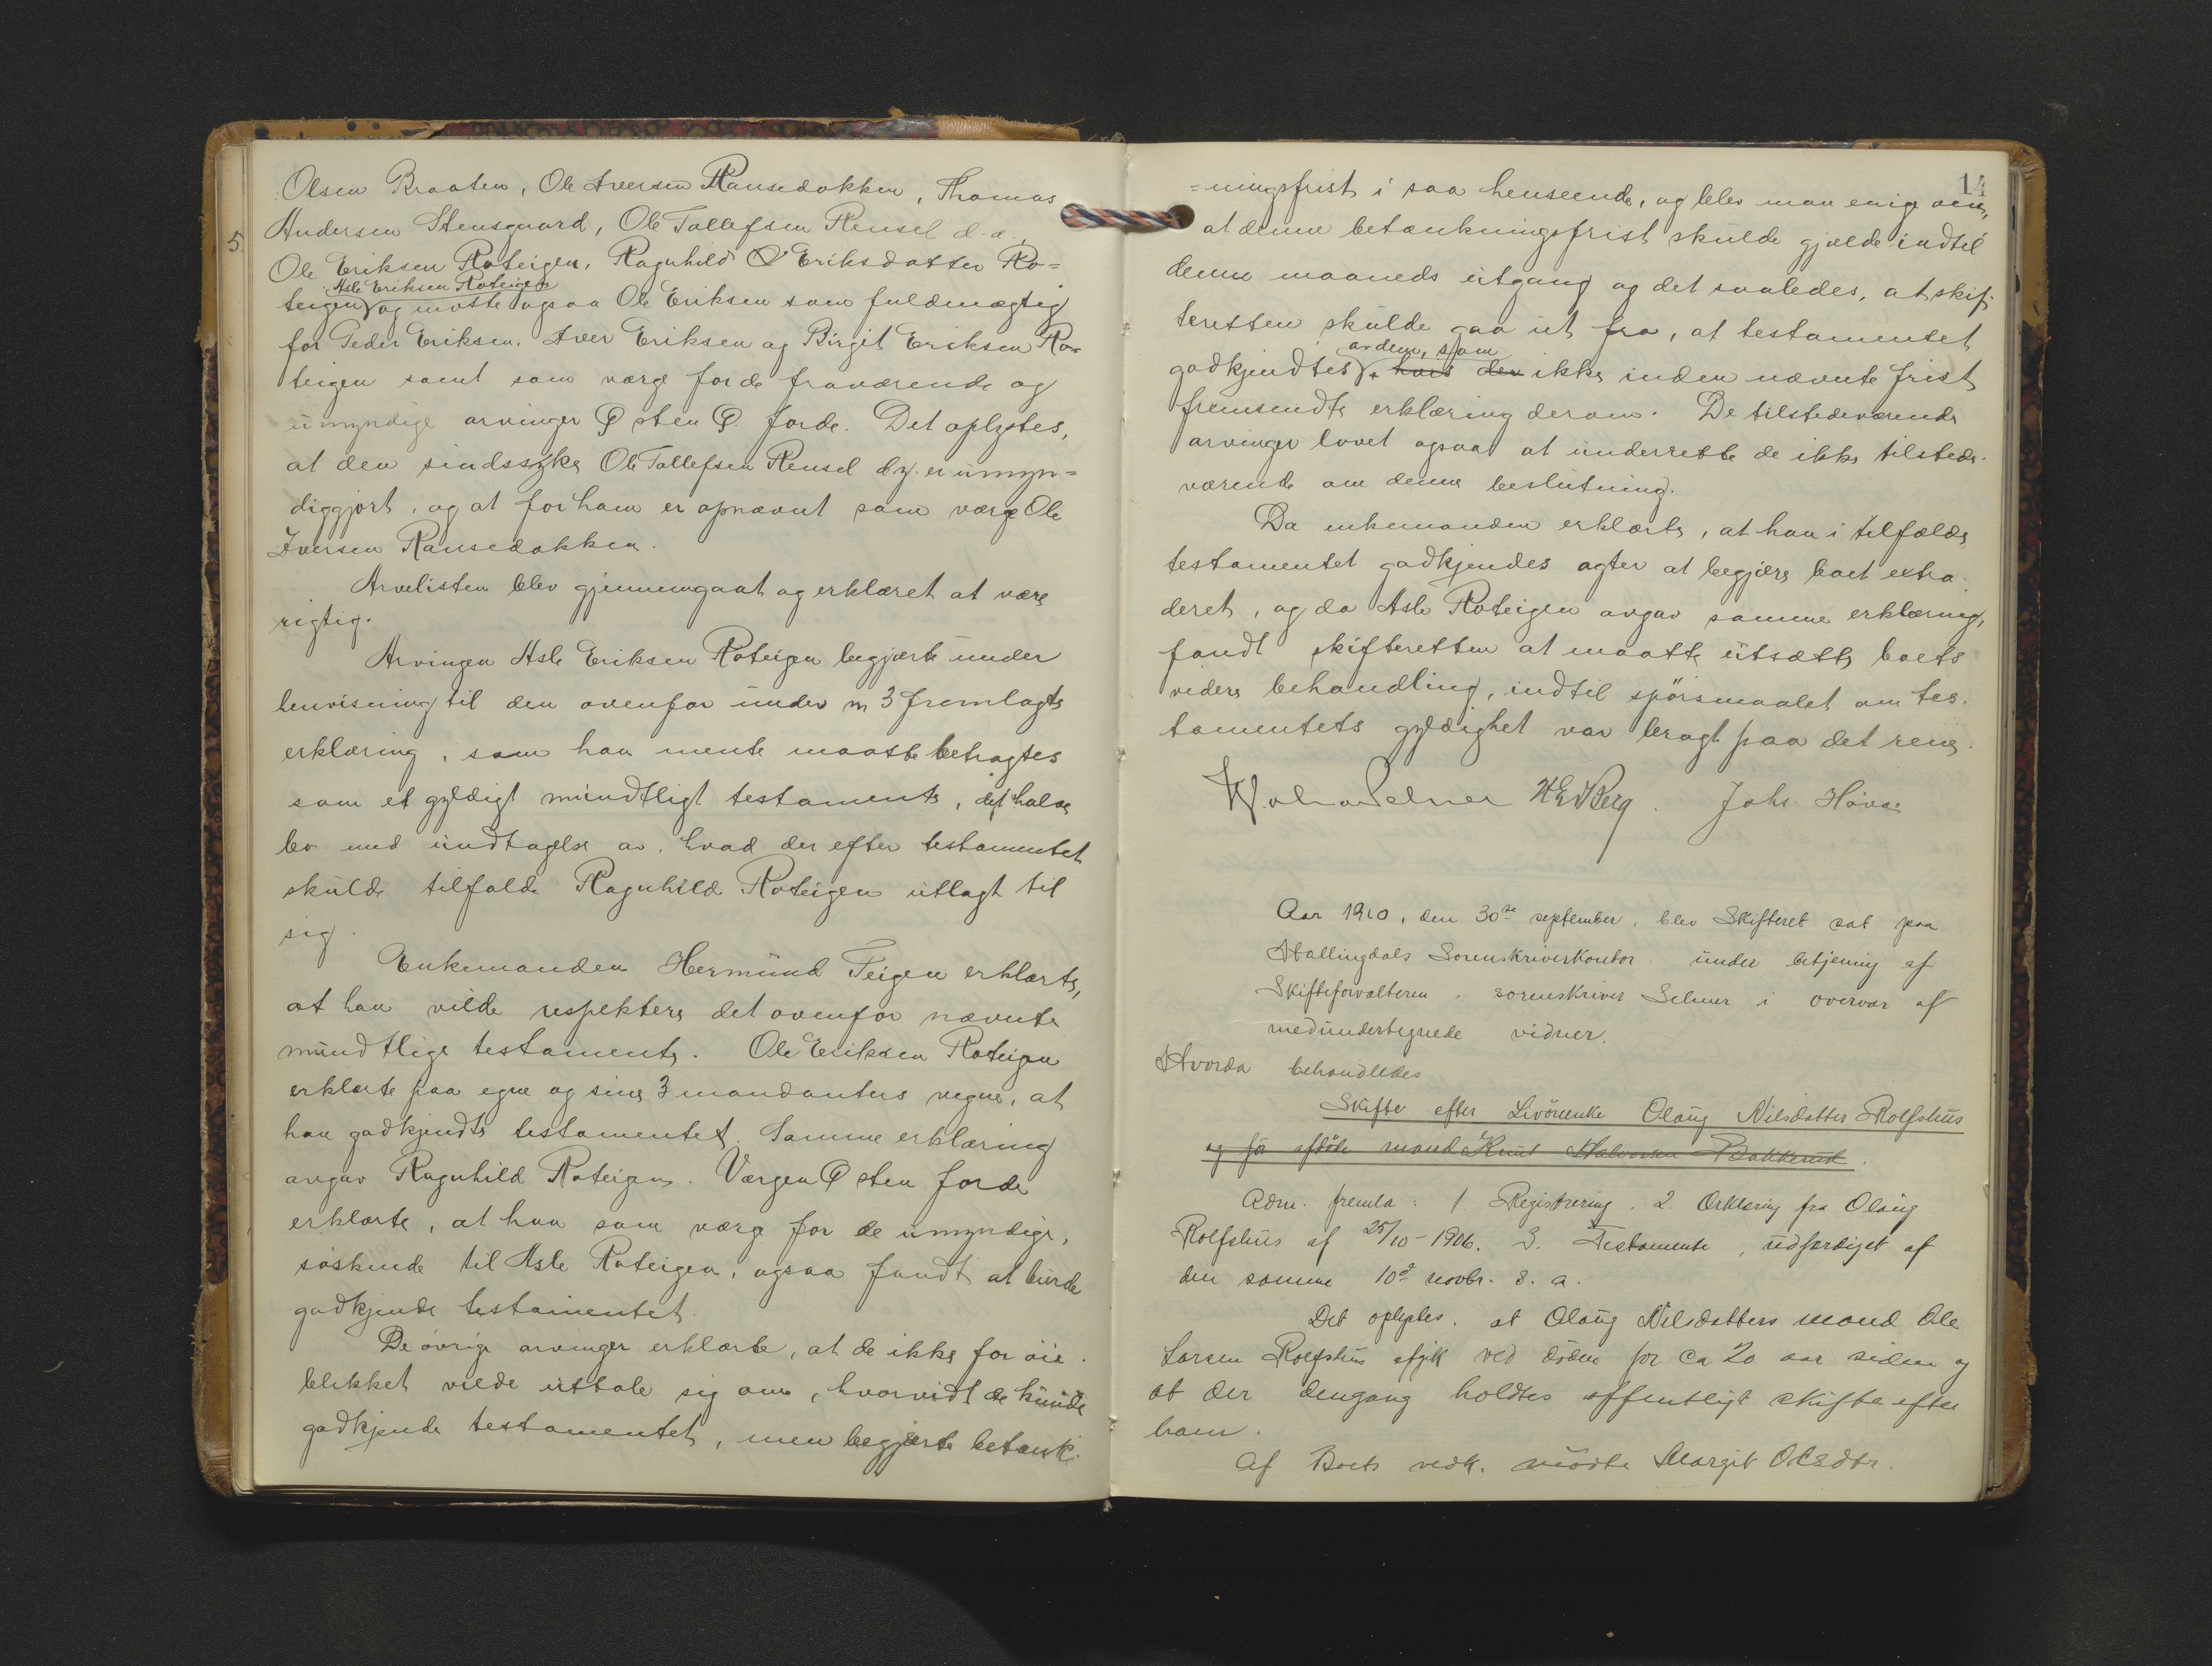 Olsen Braaten, Ole Iversen Rausedokken, Thomas
Andersen Stensgaard, Ole Tollefsen Rensel d.æ.,
5.
Ole Eriksen Roteigen, Ragnhild Eriksdatter Ro=
Asle Eriksen Roteigen
teigen og møtte ogsaa Ole Eriksen som fuldmægtig
for Peder Eriksen, Iver Eriksen og Birgit Eriksen Ro=
teigen samt som værge for de fraværende og
umyndige arvinger Østen Ø. Jorde. Det oplystes,
at den sindssyke Ole Tollefsen Rensel d.y. er umyn=
diggjort, og at for ham er opnævnt som værge Ole
Iversen Rausedokken.
Arvelisten blev gjennemgaat og erklæret at være
rigtig.
Arvingen Asle Eriksen Roteigen begjærte under
henvisning til den ovenfor under nr 3 fremlagte
erklæring, som han mente maatte betragtes
som et gyldigt mundtligt testamente, det halve
bo med undtagelse av, hvad der efter testamentet
skulde tilfalde Ragnhild Roteigen utlagt til
sig.
Enkemanden Hermund Teigen erklærte,
at han vilde respektere det ovenfor nævnte
mundtlige testamente. Ole Eriksen Roteigen
erklærte paa egne og sine 3 mandanters vegne, at
han godkjendte testamentet. Samme erklæring
avgav Ragnhild Roteigen. Værgen Østen Jorde
erklærte, at han som værge for de umyndige,
søskende til Asle Roteigen, ogsaa fandt at burde
godkjende testamentet.
De øvrige arvinger erklærte, at de ikke for øie-
blikket vilde uttale sig om, hvorvidt de kunde
godkjende testamentet, men begjærte betænk-
14
=ningsfrist i saa henseende, og blev man enige om,
at denne betænkningsfrist skulde gjælde indtil
denne maaneds utgang og det saaledes, at skif-
teretten skulde gaa ut fra, at testamentet
av dem, som
godkjendtes, hvis den ikke inden nævnte frist
fremsendte erklæring derom. De tilstedeværende
arvinger lovet ogsaa at underrette de ikke tilstede-
værende om denne beslutning.
Da enkemanden erklærte, at han i tilfælde
testamentet godkjendes agter at begjære boet extra-
deret, og da Asle Roteigen avgav samme erklæring,
fandt skifteretten at maatte utsætte boets
videre behandling, indtil spørsmaalet om tes-
tamentets gyldighet var bragt paa det rene.
Selmer H E Berg. Johs. Høva
Aar 1910, den 30te september, blev Skifteret sat paa
Hallingdals Sorenskriverkontor under betjening af
Skifteforvalteren, sorenskriver Selmer i overvær af
medundertegnede vidner.
Hvorda behandledes
Skifte efter Livørenke Olaug Nilsdatter Rolfshus
og før afdøde mand Knut Halvorsen Bakkerud.
Adm. fremla: 1. Registrering. 2. Erklæring fra Olaug
Rolfshus af 25/10-1906. 3. Testamente, udfærdiget af
den samme 10de novbr. s. a.
Det oplystes, at Olaug Nilsdatters mand Ole
Larsen Rolfshus afgik ved døden for ca 20 aar siden og
at der dengang holdtes offentligt skifte efter
ham.
Af Boets vedk. mødte Margit Olsdtr.